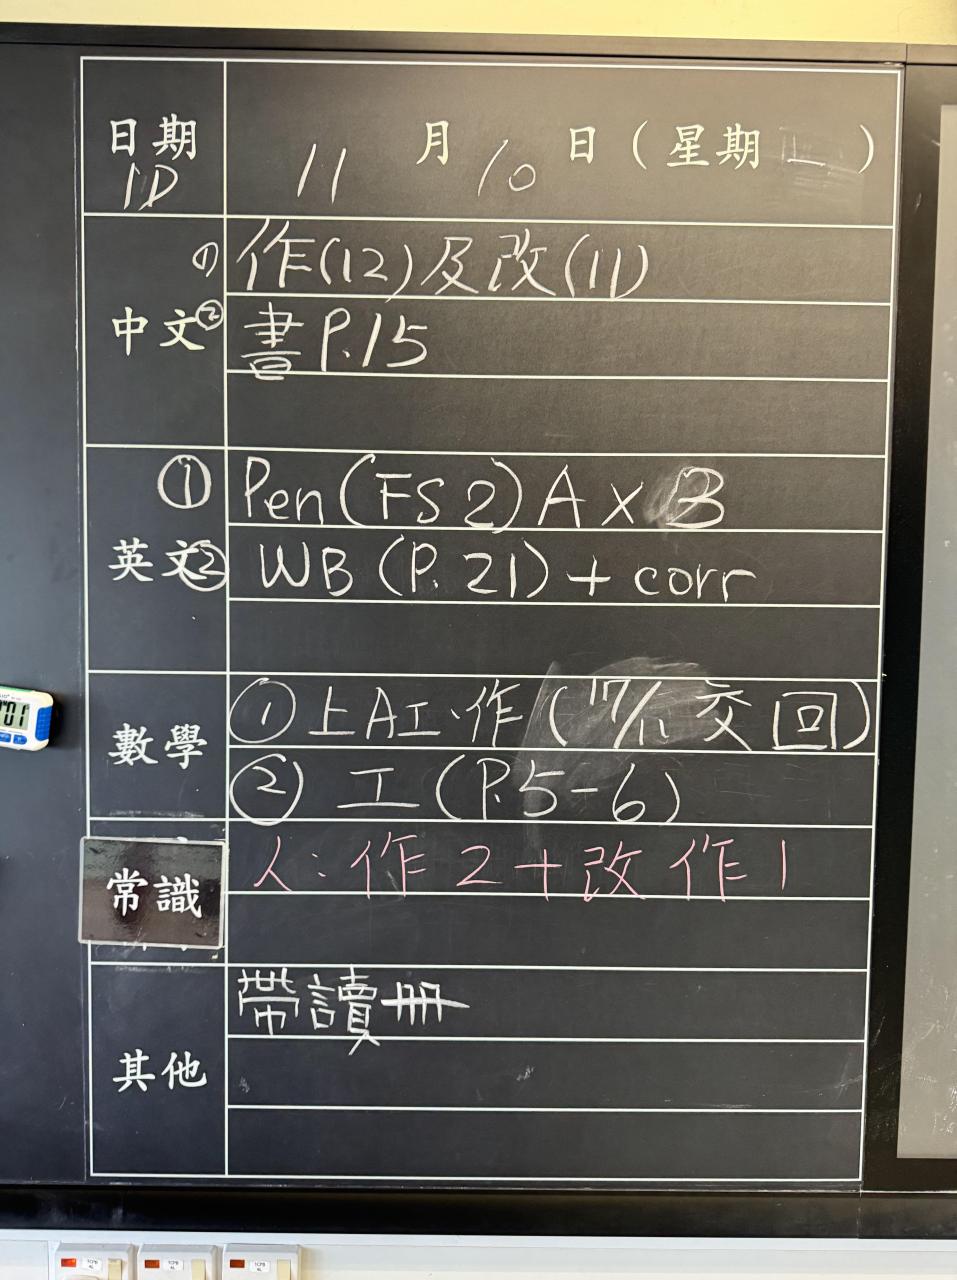 日期 11 月 10 日 (星期 )
1D
中文 ① 作(12)及改(11)
② 書P.15
英文 ① Pen(FS2)A X B
② WB (P.21) + corr
數學 ① 上AI作 (17/11 交回)
② 工(P.5-6)
常識 人:作2+改作1
其他 帶讀冊